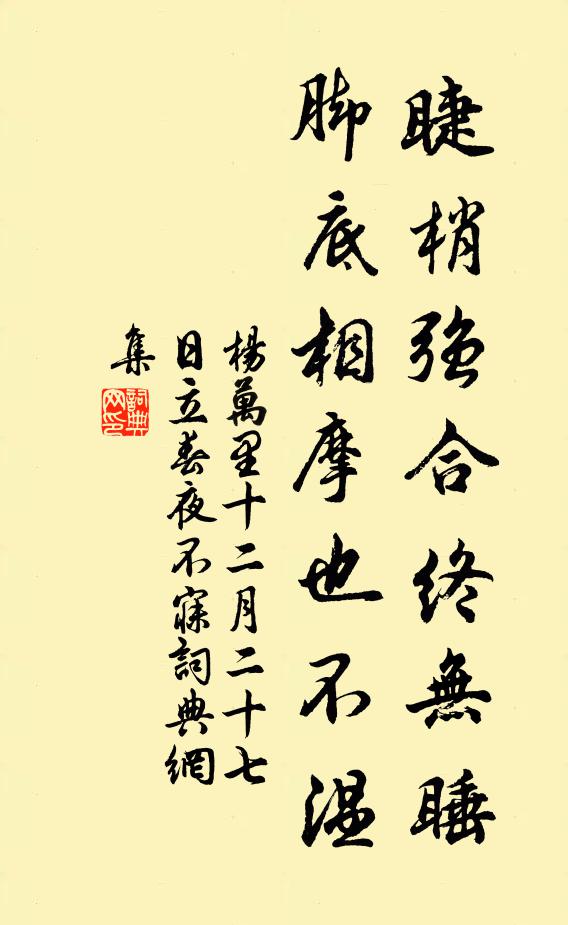 睫梢強合終無睡
脚底相摩也不溫
楊萬里十二月二十七
日立春夜不寐詞典網
集
詞典網印